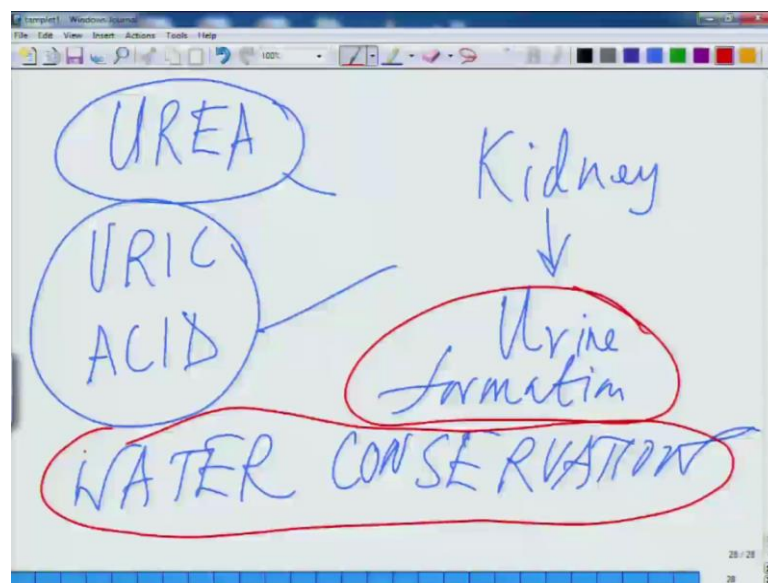 templet1 Windows Journal
File Edit View Insert Actions Tools Help
100%
UREA
Kidney
URIC
ACID
Urine
formation
WATER CONSERVATION
28 / 28
28